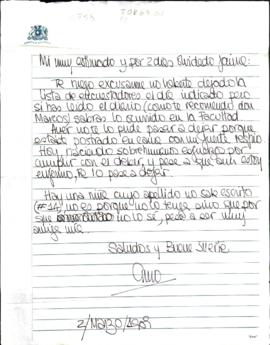 Mi muy estimado y por 2 días olvidado Jaime:
Te ruego excusarme no haberte dejado la
lista de encuestadores el día indicado pero
si has leído el diario (como te recomendó don
Marcos) sabrás lo ocurrido en la Facultad
Ayer no te lo pude pasar a dejar porque
estaba postrado en cama con un fuerte resfrío
Hoy haciendo sobrehumano esfuerzo por
cumplir con el deber, y pese a que aún estoy
enfermo, te lo pasé a dejar.
Hay una niña cuyo apellido no sale escrito
(#14), no es porque no lo tenga sino que por
que no lo sé, pese a ser muy
amiga mía.
Saludos y Buena Suerte
2/Marzo/1989